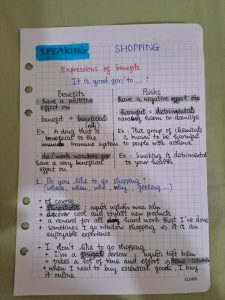 SPEAKING SHOPPING
Expressions of benefits
It is good for/to....
Benefits
have a positive effect on
benefit → beneficial
Ex: A drug that is beneficial to the immune system
do/work wonders for
have a very beneficial effect on
Risks
have a negative effect on
harmful = detrimental
causing harm or damage
Ex: This group of chemicals is known to be harmful to people with asthma
Ex: Smoking is detrimental to your health
1. Do you like to go shopping?
(where, when, who, why, feeling...)
+ of course
+ shopaholic: người nghiện mua sắm
+ discover cool and stylist new products
+ a reward for all hard work that I've done
+ sometimes I go window shopping, it is an enjoyable experience
- I don't like to go shopping
+ I'm a frugal person: người tiết kiệm
+ takes a lot of time and effort
+ when I need to buy essential goods, I buy it online